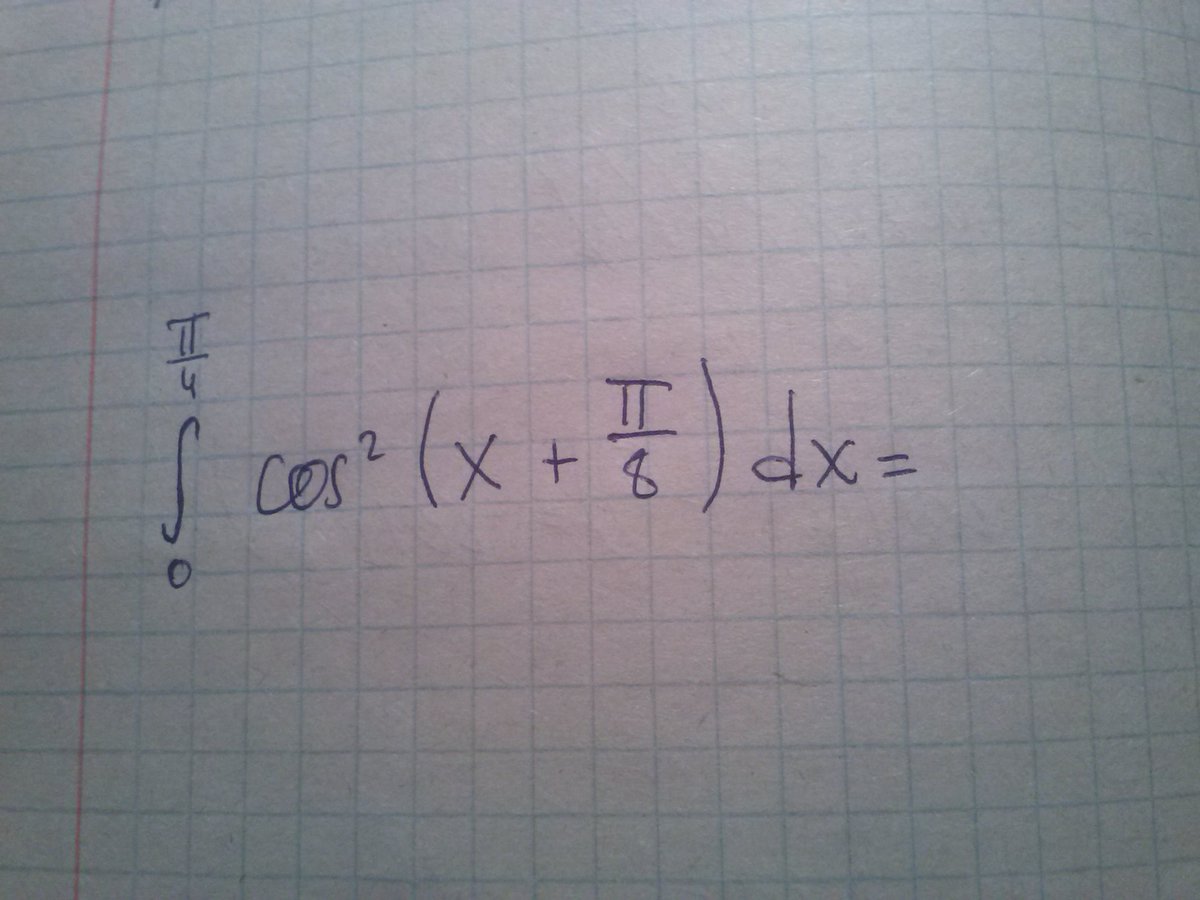 ∫₀^(π/4) cos² (x + π/8) dx =